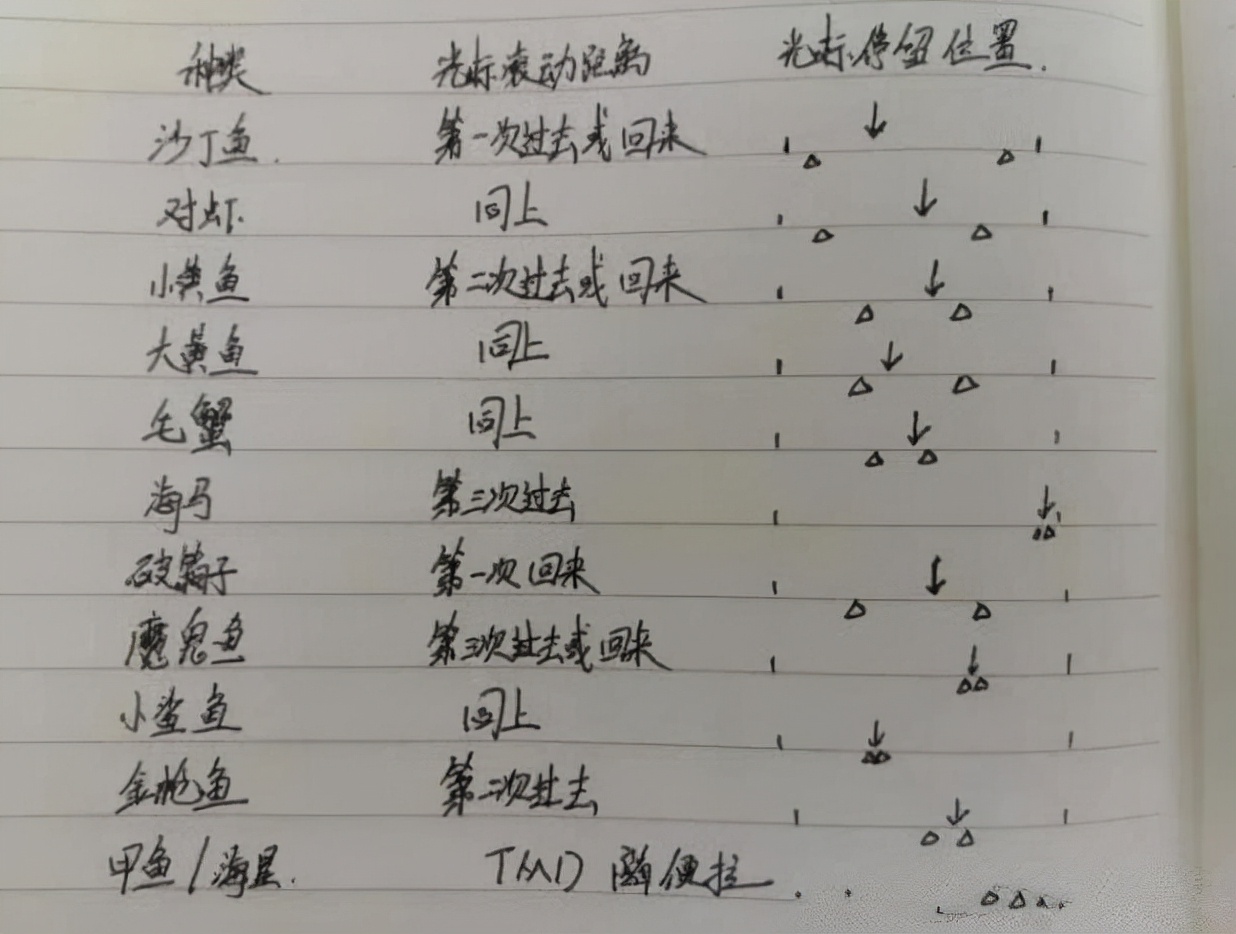 种类 光标滚动距离 光标停钮位置.
沙丁鱼. 第一次过去或回来
对虾 同上
小黄鱼 第二次过去或回来
大黄鱼 同上
毛蟹 同上
海马 第三次过去
破鞋子 第一次回来
魔鬼鱼 第三次过去或回来
小鲨鱼 同上
金枪鱼 第二次过去
甲鱼/海星. TMD 随便拉